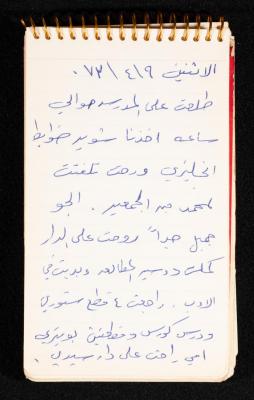 الاثنين ٩\٤\٧٣.
طلعت على المدرسه حوالي
ساعه اخذنا شويه ضوابط
انجليزي ورحت تلفنت
لمحمد من الجمعيه. الجو
جميل جداً روحت على الدار
كملت درس المطالعه وبديت في
الادب. راجعت ٤ قطع ستوري
ودرس كورس وقطعتين بويتري
امي راحت على دار سيدي.